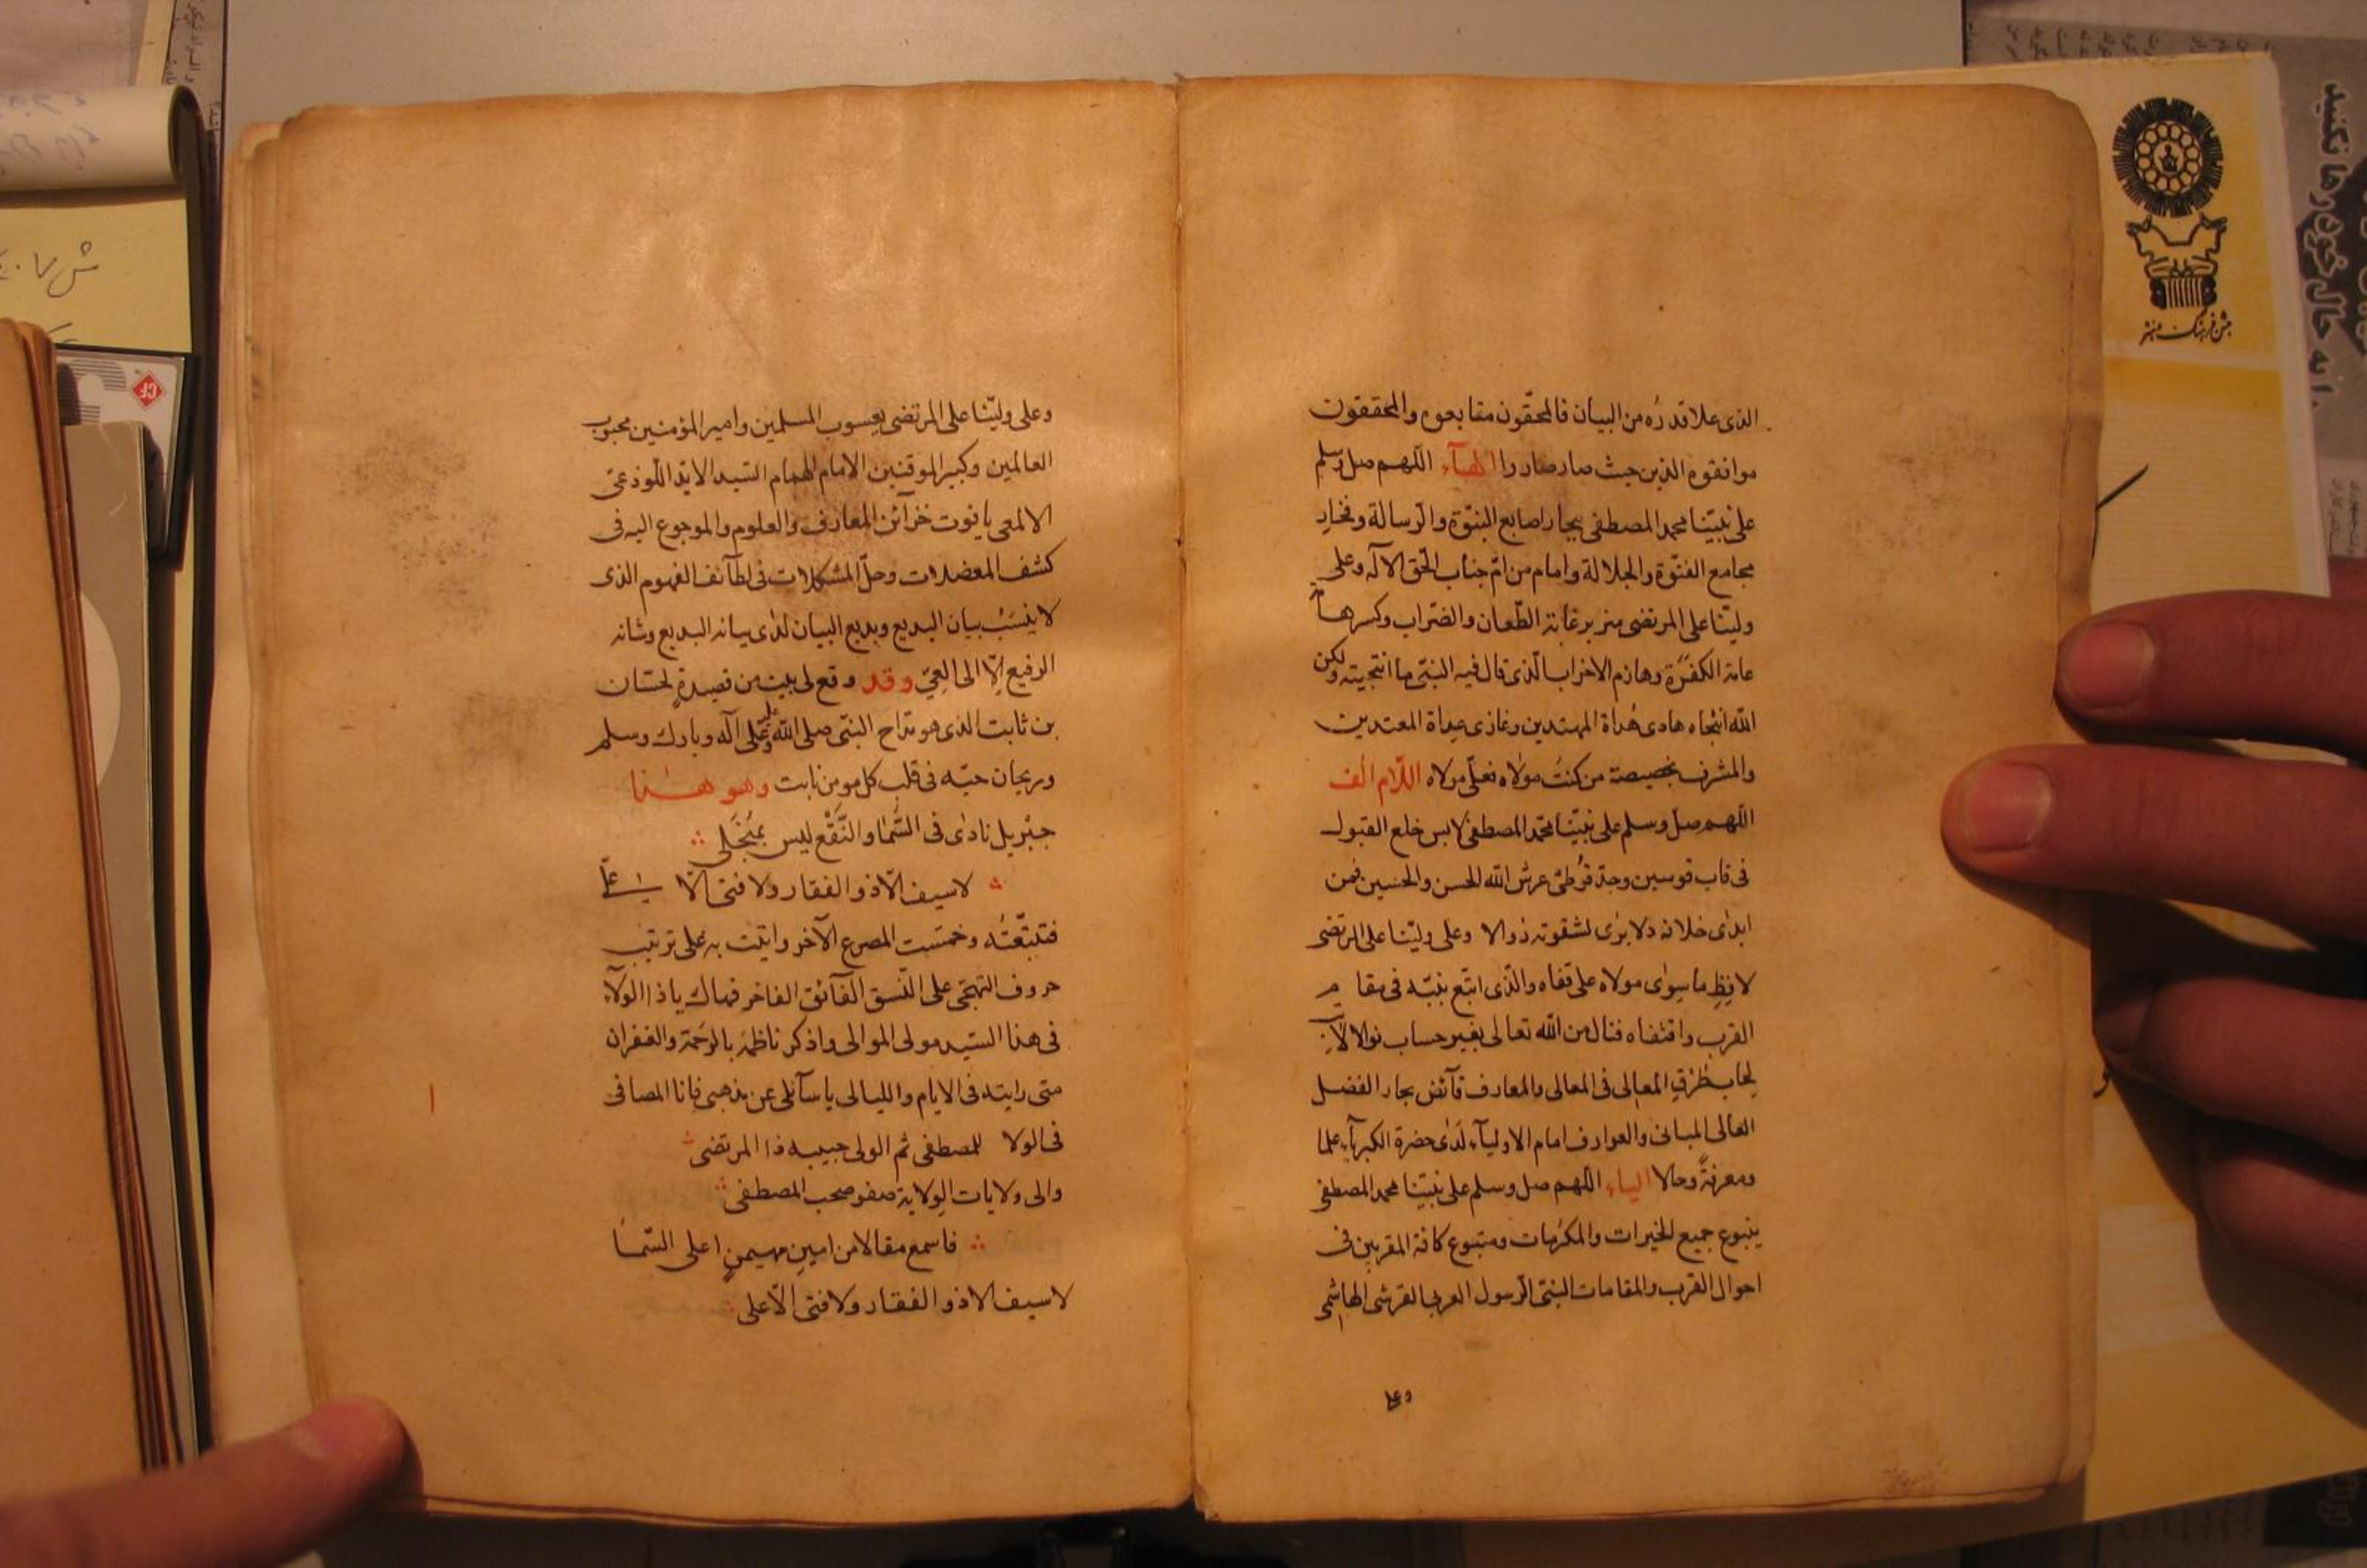 الذی علا قدرُه من البیان فالمحقّون متابعوه والمحققون
موافقوه الذین حیث صار صاروا الهآء اللّهم صل وسلم
علی نبیّنا محمد المصطفی بحار اصابع النبوّة والرسالة وفخار
مجامع الفتوّة والجلالة وامام من امّ جناب الحق الاله وعلی
ولیّنا علی المرتضی هزبر غابة الطّعان والضراب وکسر هامّة
عامة الکفرة وهازم الاحزاب الّذی قال فیه النبیّ ما انتجیته ولکن
اللّه انتجاه هادی هُداة المهتدین وغازی عداة المعتدین
والمشرف بخصیصة من کنت مولاه فعلّی مولاه اللّام الف
اللّهم صلّ وسلم علی نبیّنا محمّد المصطفی لابس خلع القبول
فی قاب قوسین وجدّ قُرطی عرش اللّه الحسن والحسین فمن
ابدٰی خلافه فلا یرٰی لشقوته زوالا وعلی ولیّنا علی المرتضی
لافظِ ما سوٰی مولاه علی قفاه والّذی اتبع نبیّه فی مقام
القرب واقتفاه فنال من اللّه تعالی بغیر حساب نوالا
طرُقِ المعالی فی المعالی والمعارف فآئض بحار الفضل
العالی المبانی والعوارف امام الاولیآء لَدٰی حضرة الکبریآء علما
ومعرفةً وحالا الیاء اللّهم صل وسلم علی نبیّنا محمد المصطفی
ینبوع جمیع الخیرات والمکرمات ومتبوع کافة المقربین فی
احوال القرب والمقامات النبیّ الرّسول العربی القرشی الهاشمی
وعلی
وعلی ولیّنا علی المرتضی یعسوب المسلمین وامیر المؤمنین محبوب
العالمین وکبیر الموقنین الامام الهمام السّید الایّد اللّوذعیّ
الالمعی یاقوت خزآئن المعارف والعلوم والموجوع الیه فی
کشف المعضلات وحلّ المشکلات فی لطآئف الفهوم الذی
لا ینسَبُ بیان البدیع وبدیع البیان لدٰی بیانه البدیع وشانه
الرفیع الّا الی العِیّ وقد وقع لی بیت من قصیدةٍ لحسّان
بن ثابت الذی هو مدّاح النبیّ صلی اللّه علیه وعلی آله وبارک وسلم
وریحان حبّه فی قلب کل مومن نابت وهو هـذا
جبْریل نادٰی فی السَّمٰا والنَّقْع لیس بمُنجَلی
لاسیف الّا ذو الفقار ولا فتی الّا علی
فتتبّعتُه وخمسّت المصرع الآخر واتیت به علی ترتیب
حروف التهجّی علی النّسق الفآئق الفاخر فهاک یا ذا الولآء
فی هذا السّید مولی الموالی واذکر ناظمَه بالرَحمَة والغفران
متی رایته فی الایام واللیالی یا سآئلی عن مذهبی فانا المصافی
فی الولا للمصطفی ثم الولی حبیبه ذا المرتضی
والی ولایات الوِلایة صفو صحب المصطفی
فاسمع مقالا من امینٍ مهیمنٍ اعلی السّمٰا
لاسیف الا ذو الفقار ولا فتی الّا علی
جشن فرهنگ و هنر
را به حال خود رها نکنید